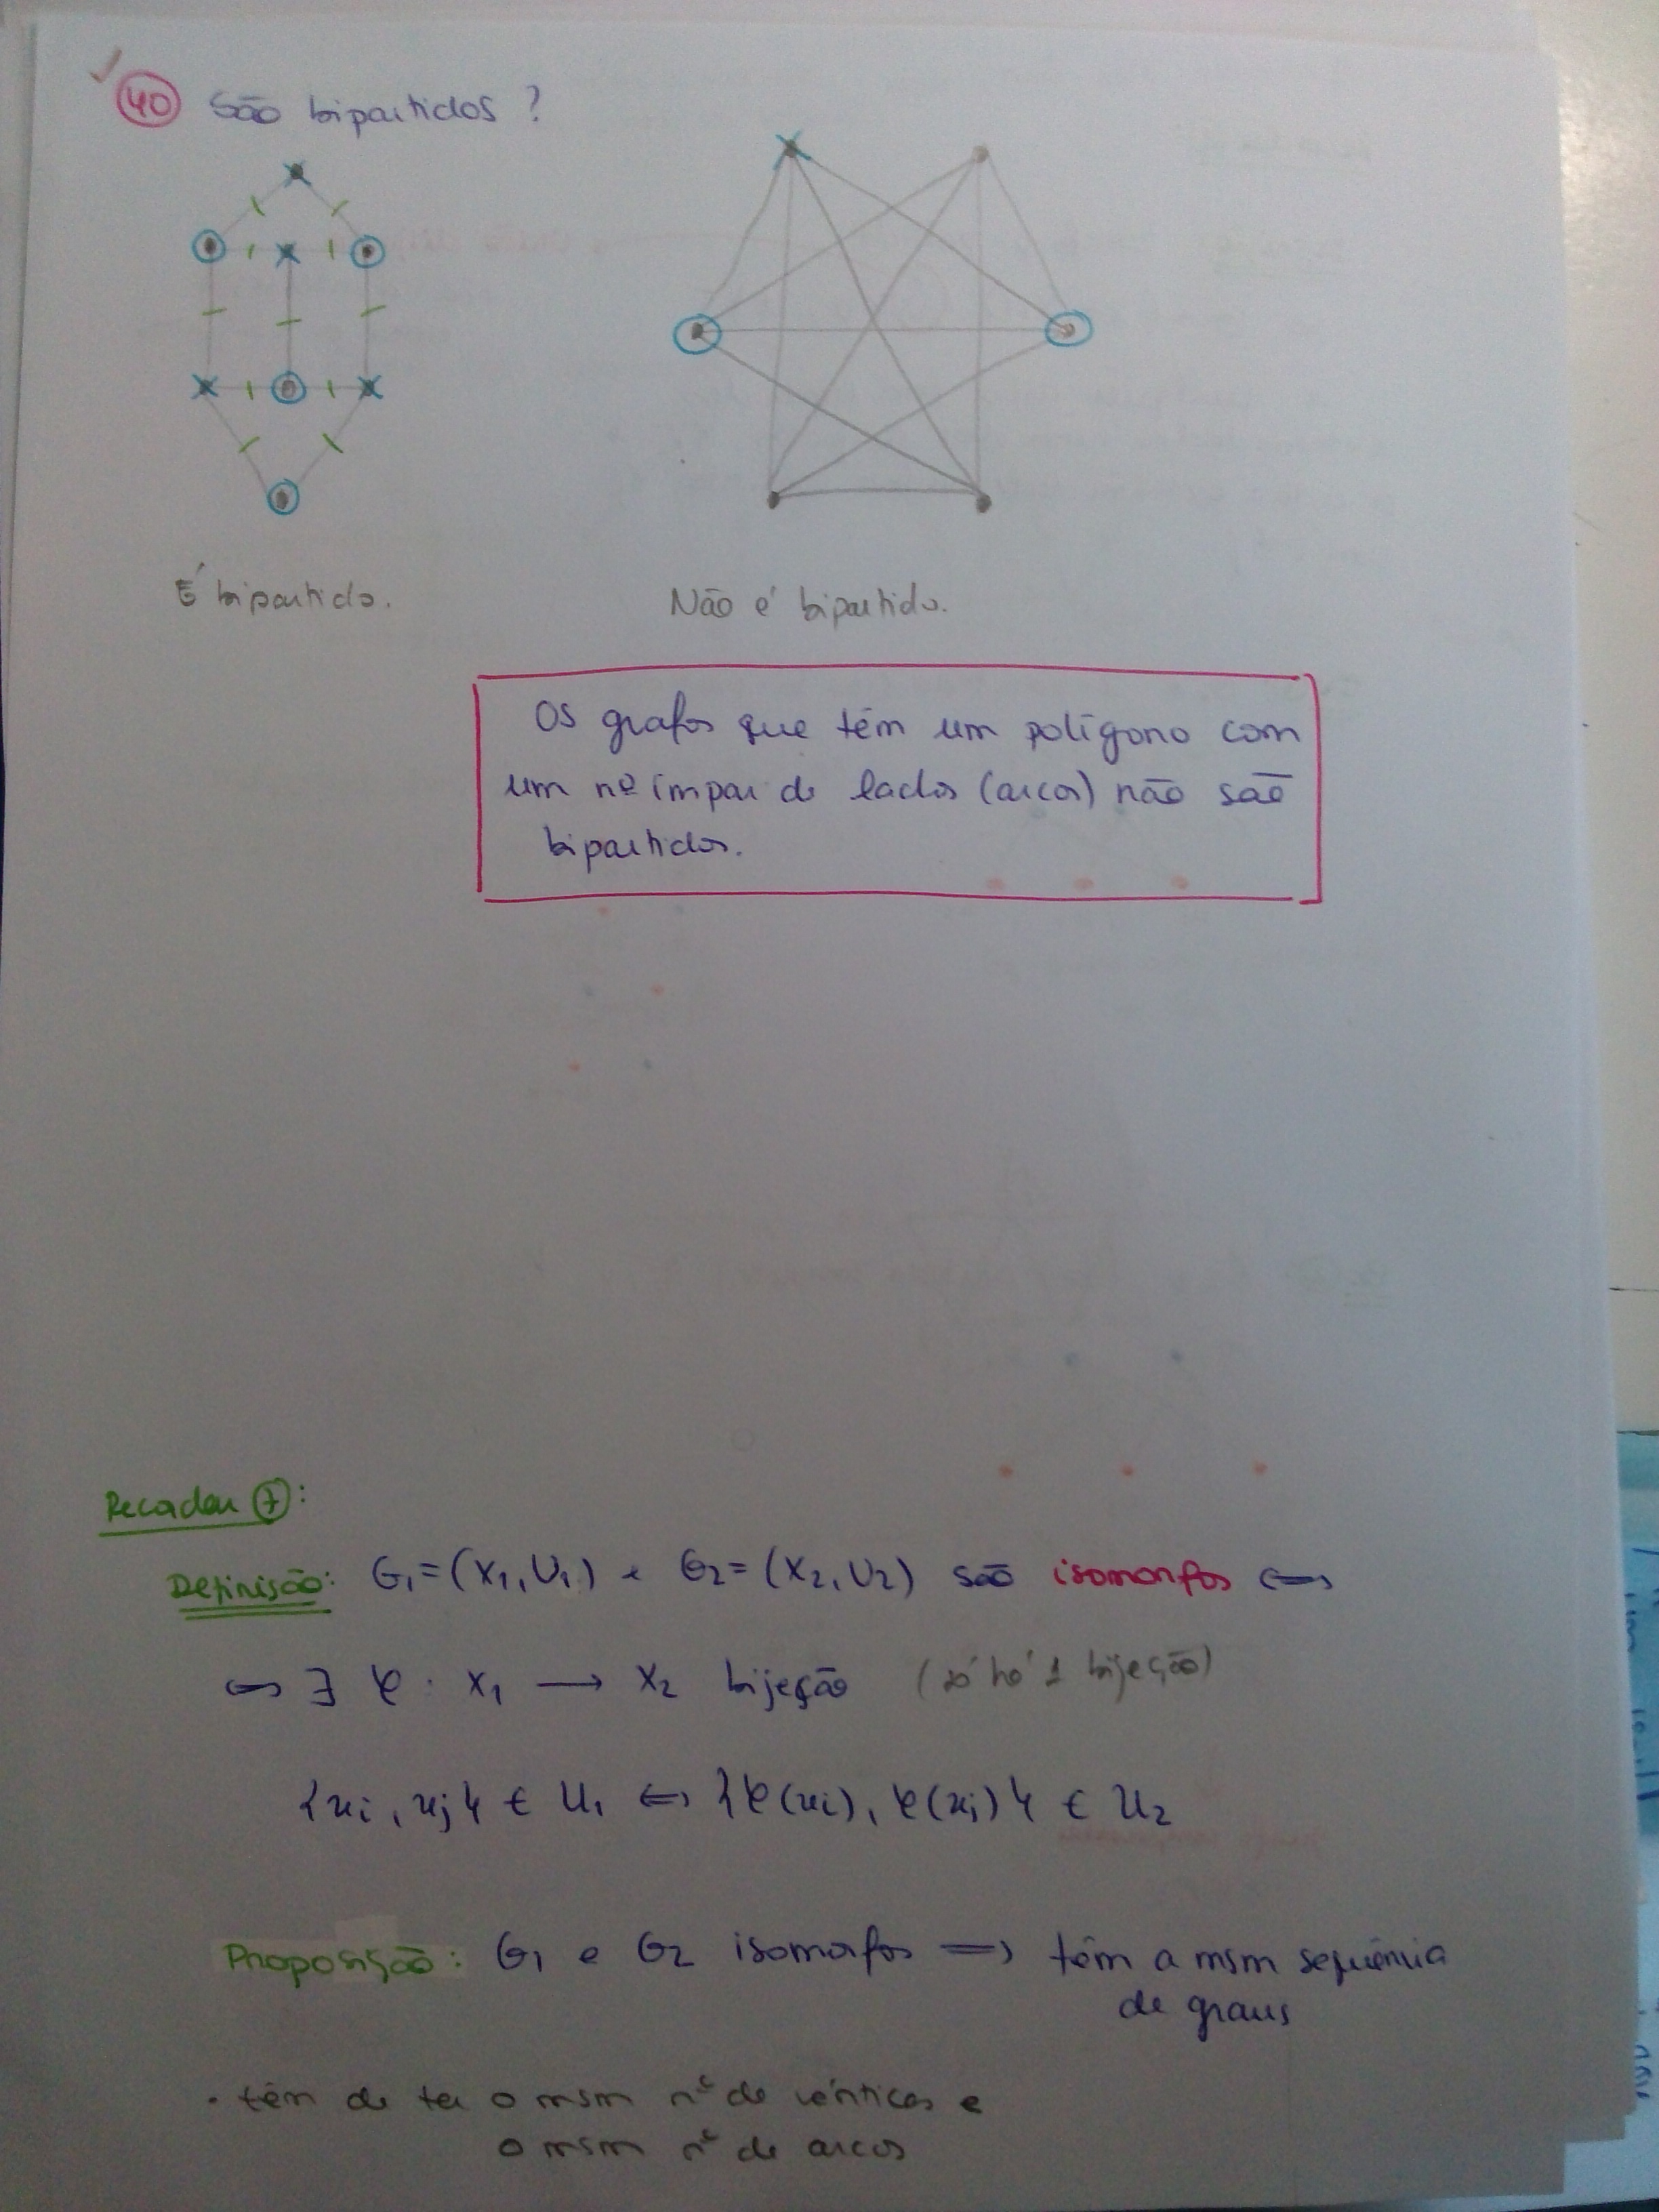 40 São bipartidos ?
É bipartido.
Não é bipartido.
Os grafos que têm um polígono com
um nº ímpar de lados (arcos) não são
bipartidos.
Recados 7:
Definisão: G₁=(X₁,U₁) e G₂=(X₂,U₂) são isomorfos ⇔
⇔ ∃ φ : X₁ → X₂ bijeção (só há 1 bijeção)
{xi, xj} ∈ U₁ ⇔ {φ(xi), φ(xj)} ∈ U₂
Proposição: G₁ e G₂ isomorfos ⇒ têm a msm sequência
de graus
· têm de ter o msm nº de vértices e
o msm nº de arcos